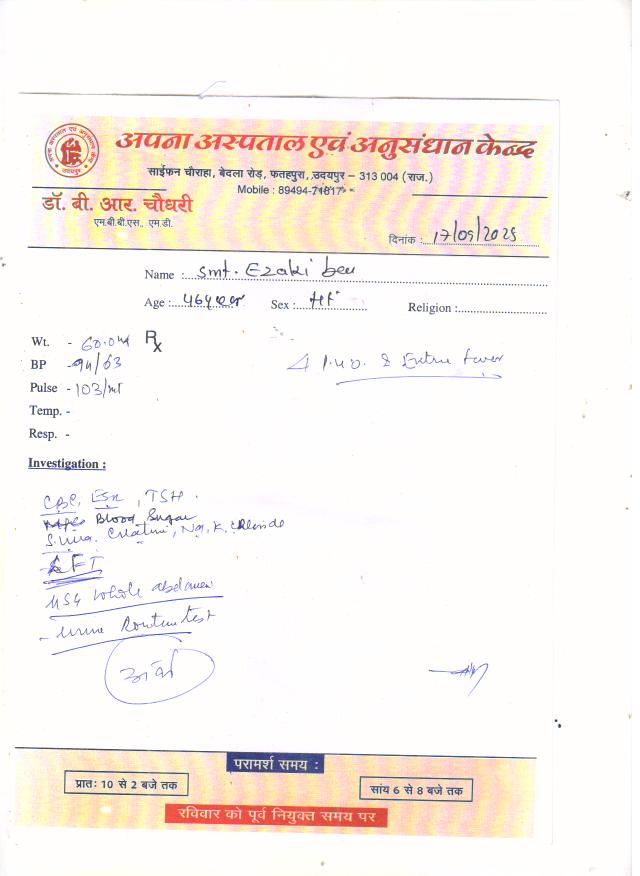 अपना अस्पताल एवं अनुसंधान केन्द्र
साईफन चौराहा, बेदला रोड़, फतहपुरा, उदयपुर – 313 004 (राज.)
Mobile : 89494-71817
डॉ. बी. आर. चौधरी
एम.बी.बी.एस., एम.डी.
दिनांक : 17/09/2025
Name : Smt. Ezaki ben
Age : 46 year Sex : Religion :
Wt. - 60.0
BP - 94/63
Pulse - 103/mt
Temp. -
Resp. -
Investigation :
CBC, ESR, TSH.
Blood Sugar
Creatini, Na, K, Chloride
LFT
USG Whole abdomen
- Urine Routine test
परामर्श समय :
प्रातः 10 से 2 बजे तक
सांय 6 से 8 बजे तक
रविवार को पूर्व नियुक्त समय पर